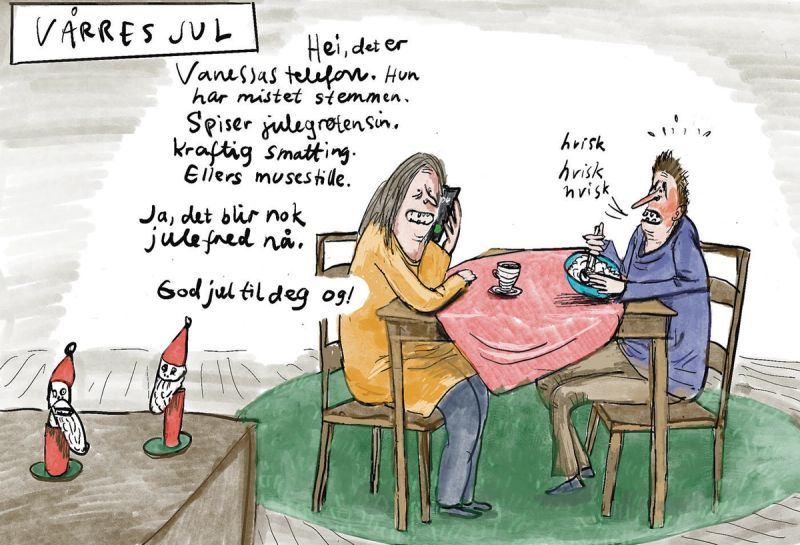 VÅRRES JUL
Hei, det er
Vanessas telefon. Hun
har mistet stemmen.
Spiser julegrøten sin.
Kraftig smatting.
Ellers musestille.
Ja, det blir nok
julefred nå.
God jul til deg og!
hvisk
hvisk
hvisk